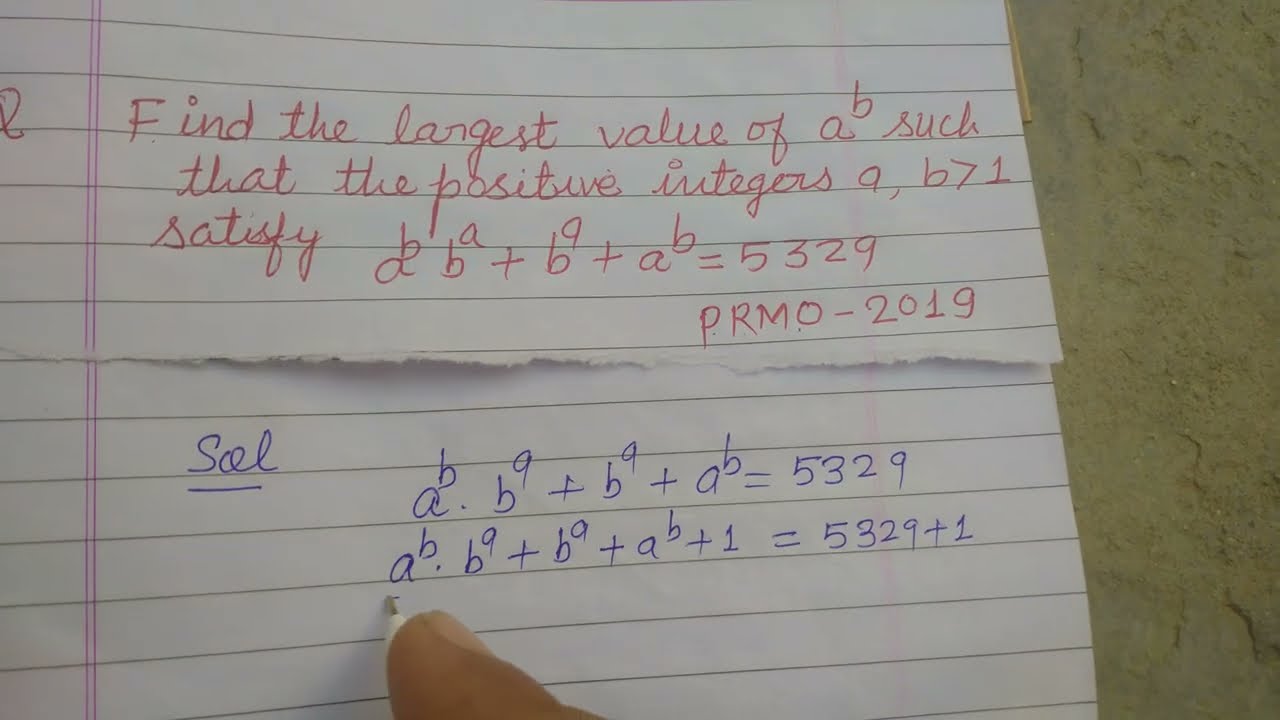 Q Find the largest value of a^b such
that the positive integers a, b>1
satisfy a^b b^a + b^a + a^b = 5329
P.R.M.O - 2019
Sol
a^b . b^a + b^a + a^b = 5329
a^b . b^a + b^a + a^b + 1 = 5329+1